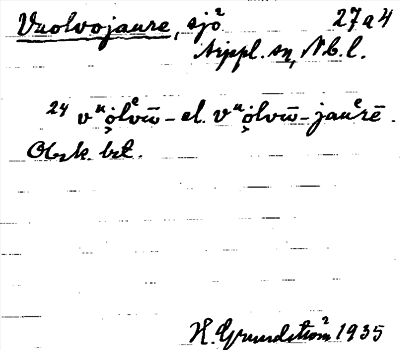 Vuolvojaure, sjö 27a4
Arppl. sn, Nb. l.
24 vᵘo̜lᵉvω̄ - el. vᵘo̜lvω̄-jauᵉrē.
Obek. bet.
H. Grundström 1935